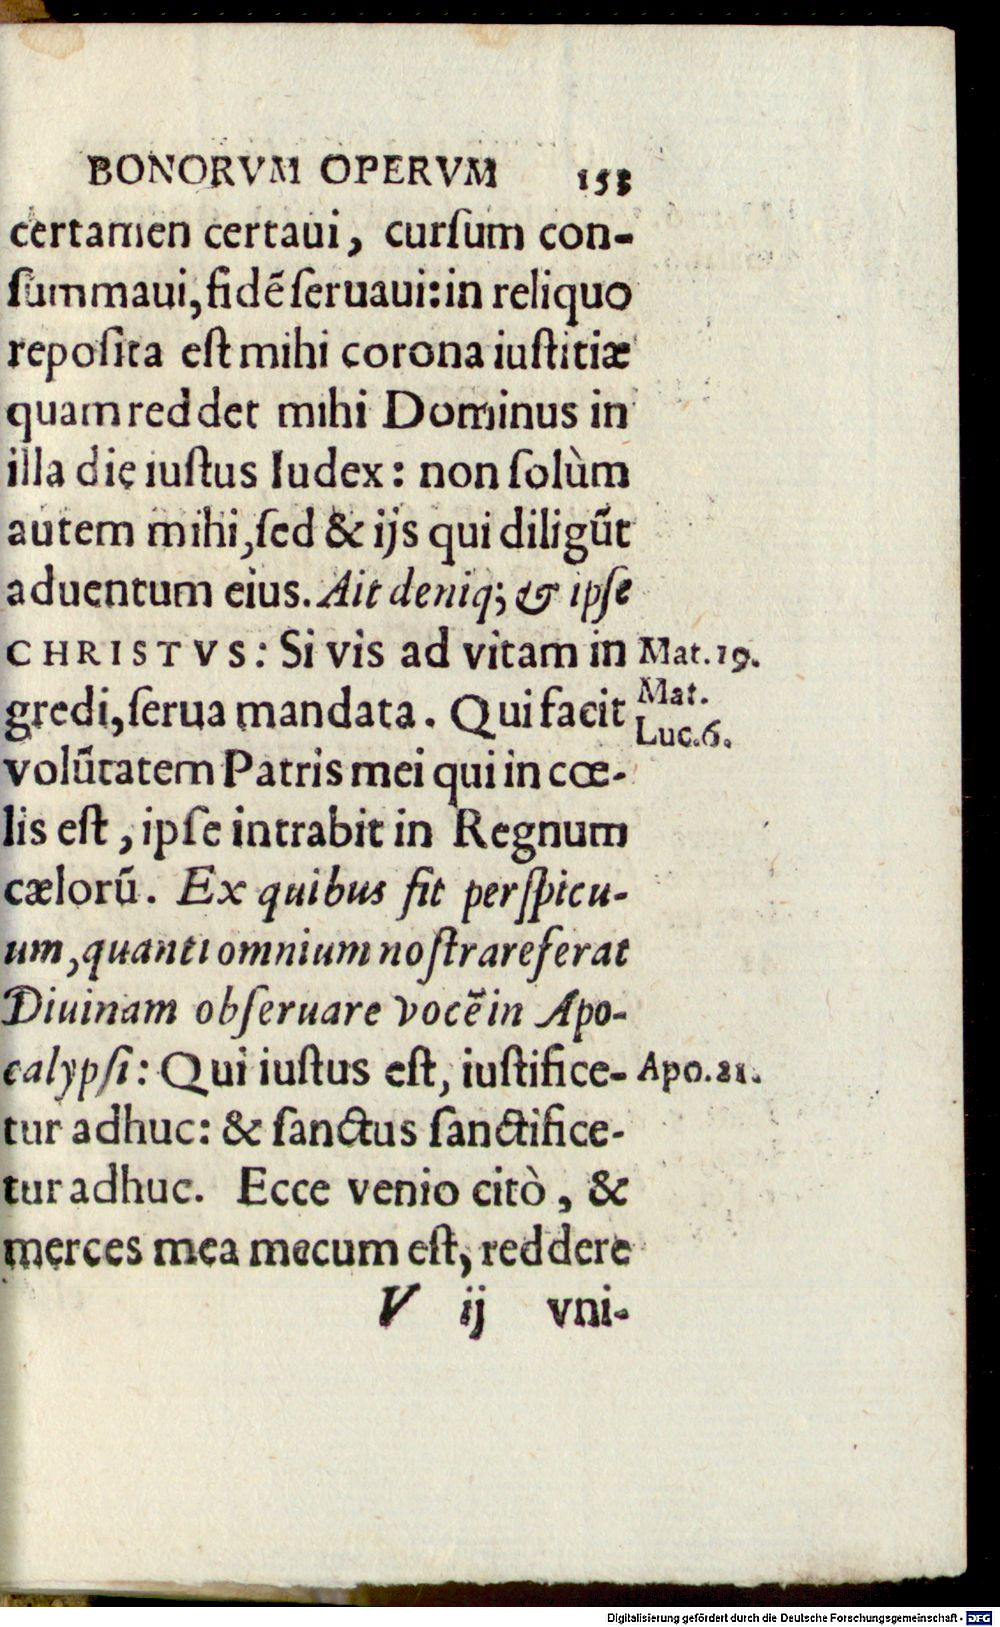 BONORVM OPERVM 158
certamen certaui, curſum con-
ſummaui, fidē ſeruaui: in reliquo
repoſita eſt mihi corona iuſtitiæ
quam reddet mihi Dominus in
illa die iuſtus Iudex: non ſolùm
autem mihi, ſed & ijs qui diligūt
aduentum eius. Ait deniq; & ipſe
CHRISTVS: Si vis ad vitam in
Mat. 19.
gredi, ſerua mandata. Qui facit
Mat.
Luc. 6.
volūtatem Patris mei qui in cœ-
lis eſt, ipſe intrabit in Regnum
cælorū. Ex quibus fit perſpicu-
um, quanti omnium noſtra referat
Diuinam obſeruare vocē in Apo-
calypſi: Qui iuſtus eſt, iuſtifice-
Apo. 21.
tur adhuc: & ſanctus ſanctifice-
tur adhuc. Ecce venio citò, &
merces mea mecum eſt, reddere
V ij vni-
Digitalisierung gefördert durch die Deutsche Forschungsgemeinschaft - DFG